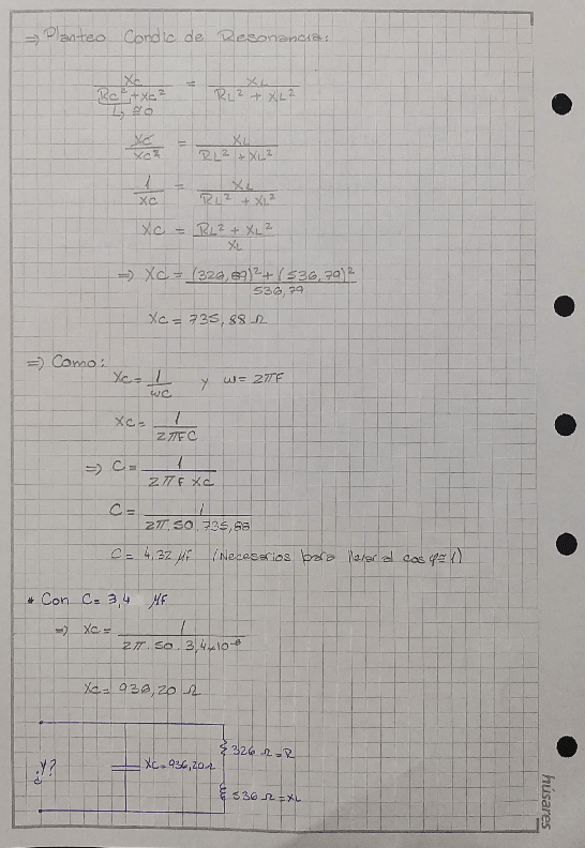 ⇒ Planteo Condic de Resonancia:
Xc / (Rc² + Xc²) = XL / (RL² + XL²)
↳ ≅ 0
Xc / Xc² = XL / (RL² + XL²)
1 / Xc = XL / (RL² + XL²)
Xc = (RL² + XL²) / XL
⇒ Xc = ((326,89)² + (536,79)²) / 536,79
Xc = 735,88 Ω
⇒ Como:
Xc = 1 / ωC y ω = 2πF
Xc = 1 / 2πFC
⇒ C = 1 / 2πf Xc
C = 1 / 2π.50.735,88
C = 4,32 μF (Necesarios para llevar al cos φ = 1)
* Con C = 3,4 μF
⇒ Xc = 1 / 2π.50.3,4x10⁻⁶
Xc = 936,20 Ω
¿Y?
Xc = 936,20 Ω
326 Ω = R
536 Ω = XL
húsares